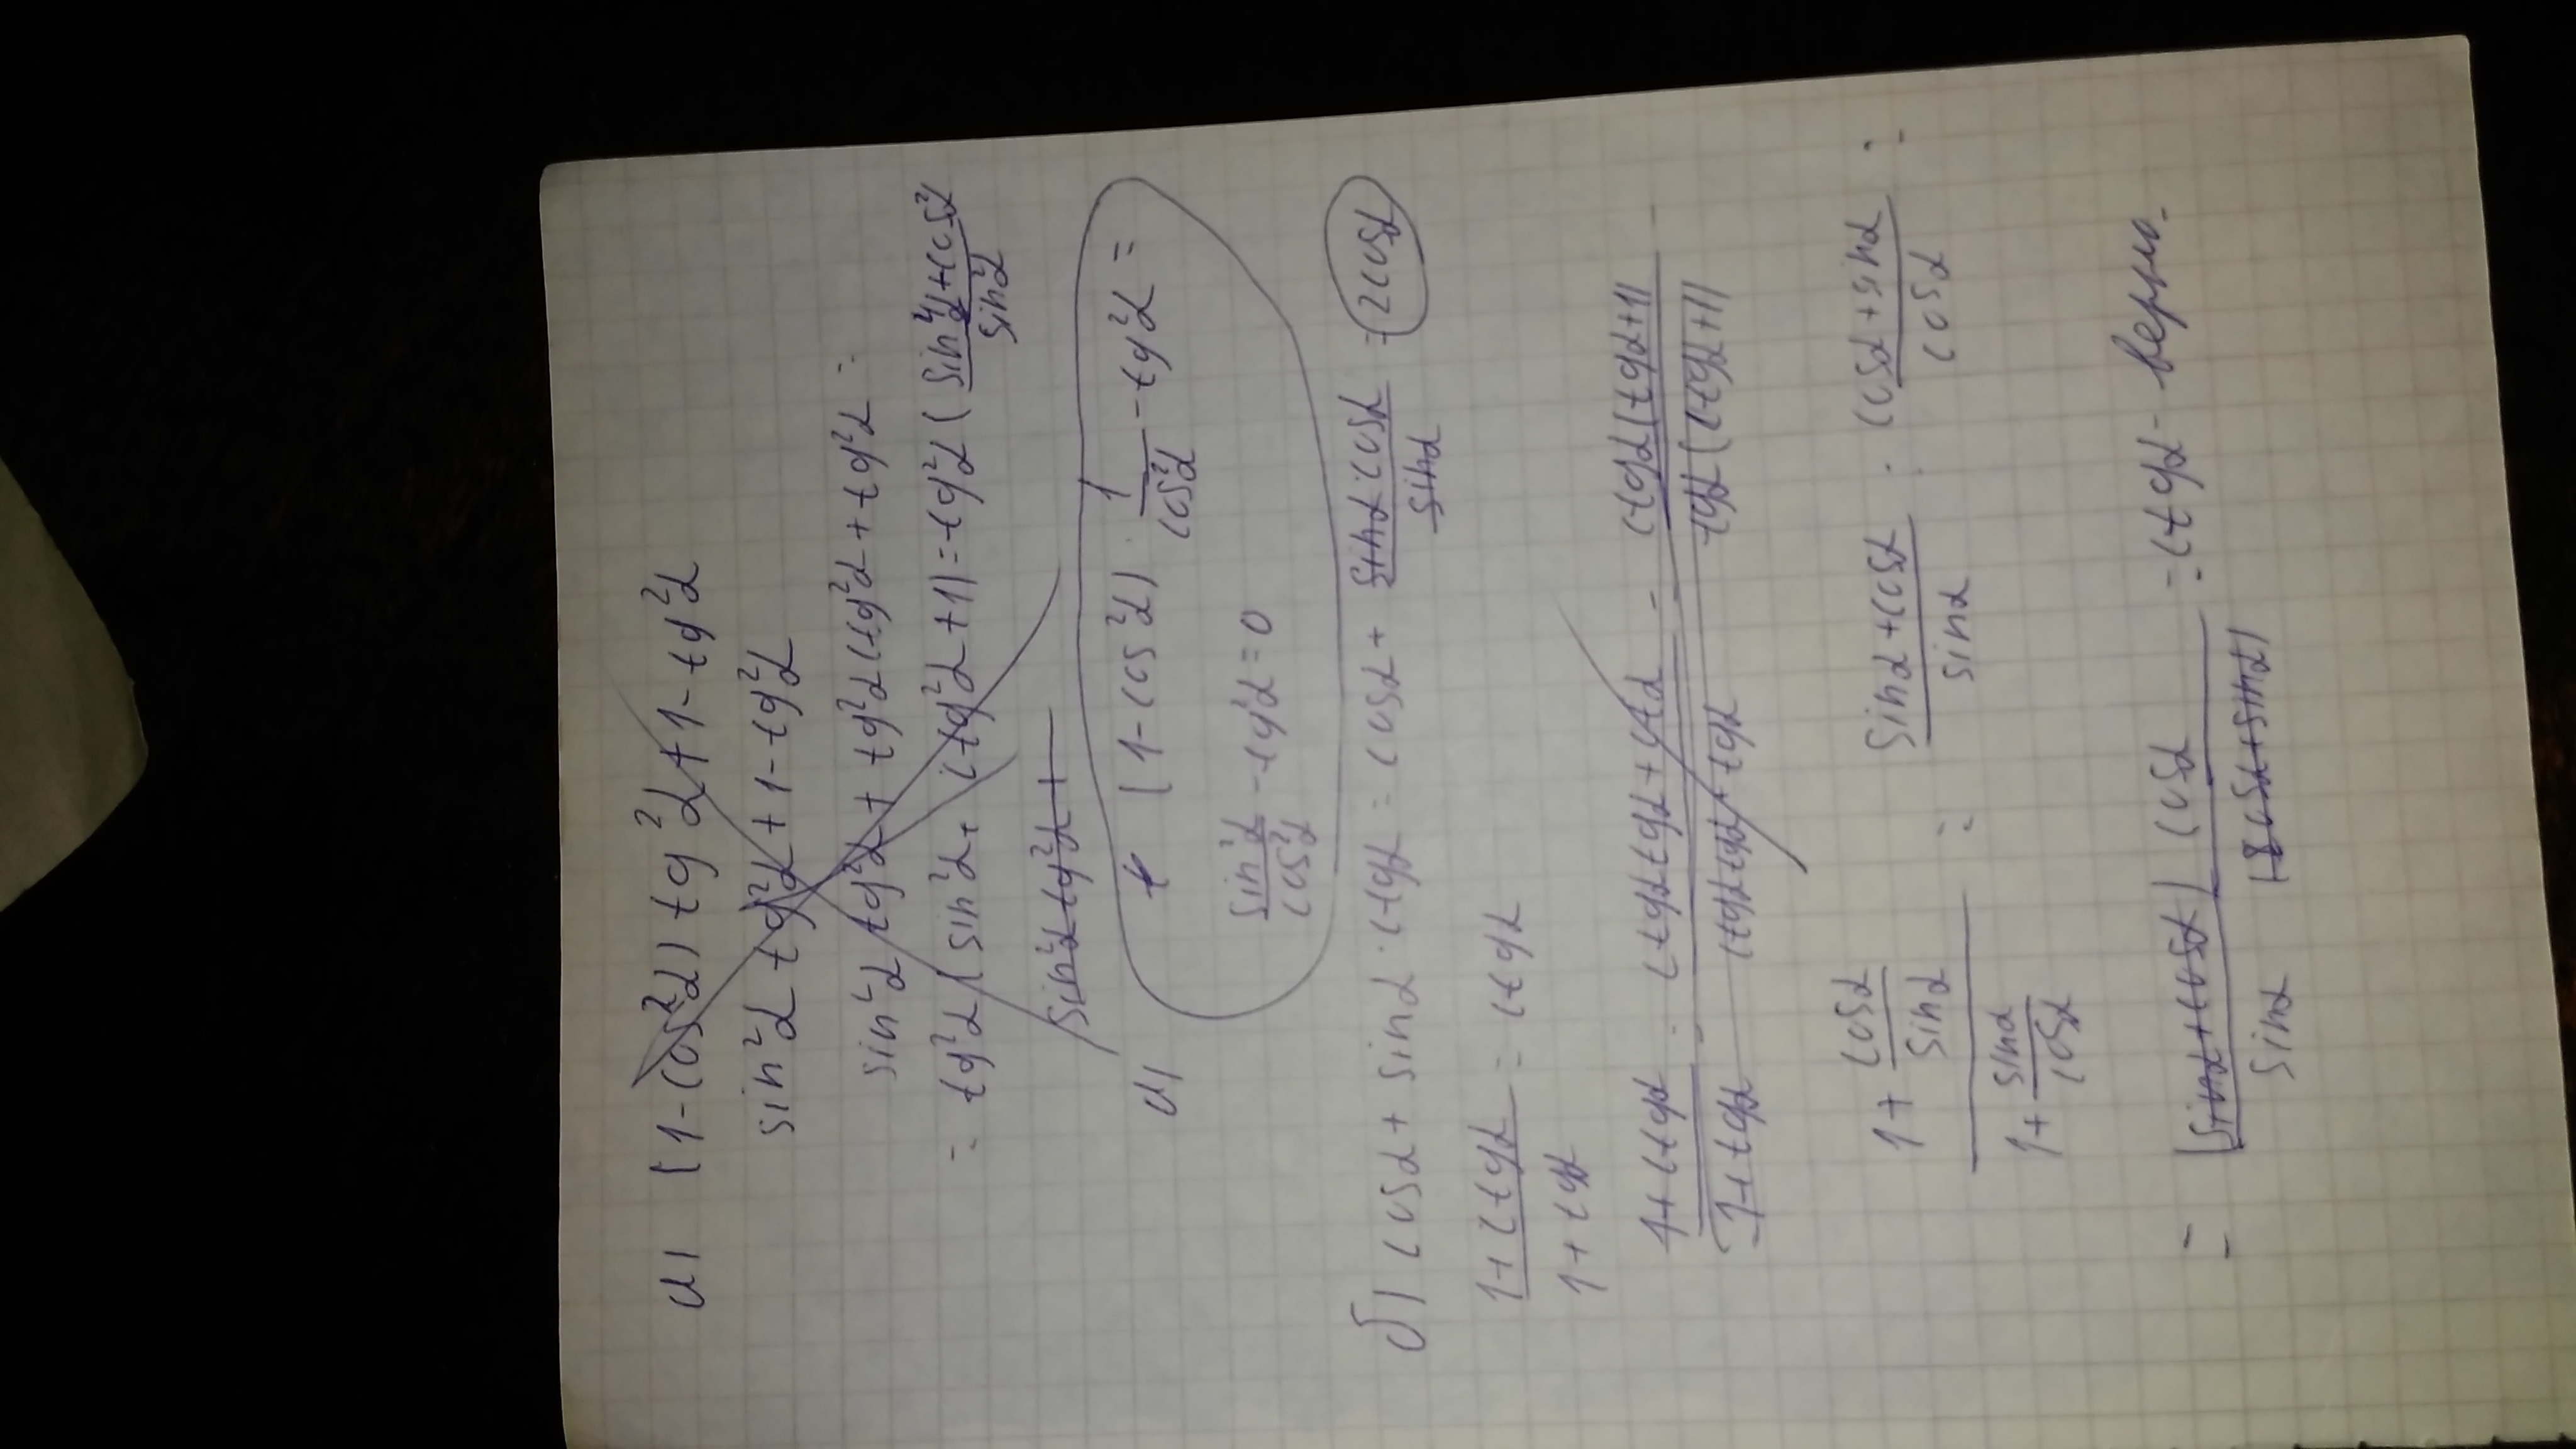 а) (1-cos²α) tg²α + 1 - tg²α
sin²α tg²α + 1 - tg²α
sin²α tg²α + tg²α ctg²α + tg²α =
= tg²α (sin²α + ctg²α + 1) = tg²α ( (sin⁴α + cos²α)/sin²α
sin²α tg²α +
а) (1-cos²α) · 1/cos²α - tg²α =
sin²α/cos²α - tg²α = 0
б) cosα + sinα · ctgα = cosα + (sinα · cosα)/sinα = 2cosα
(1+ctgα)/(1+tgα) = ctgα
(1+ctgα)/(1+tgα) = (ctgα tgα + ctgα)/(ctgα tgα + tgα) = (ctgα(tgα+1))/(tgα(ctgα+1)) =
(1 + cosα/sinα)/(1 + sinα/cosα) = (sinα + cosα)/sinα : (cosα + sinα)/cosα =
= ((sinα + cosα) cosα)/(sinα (cosα + sinα)) = ctgα - верно.